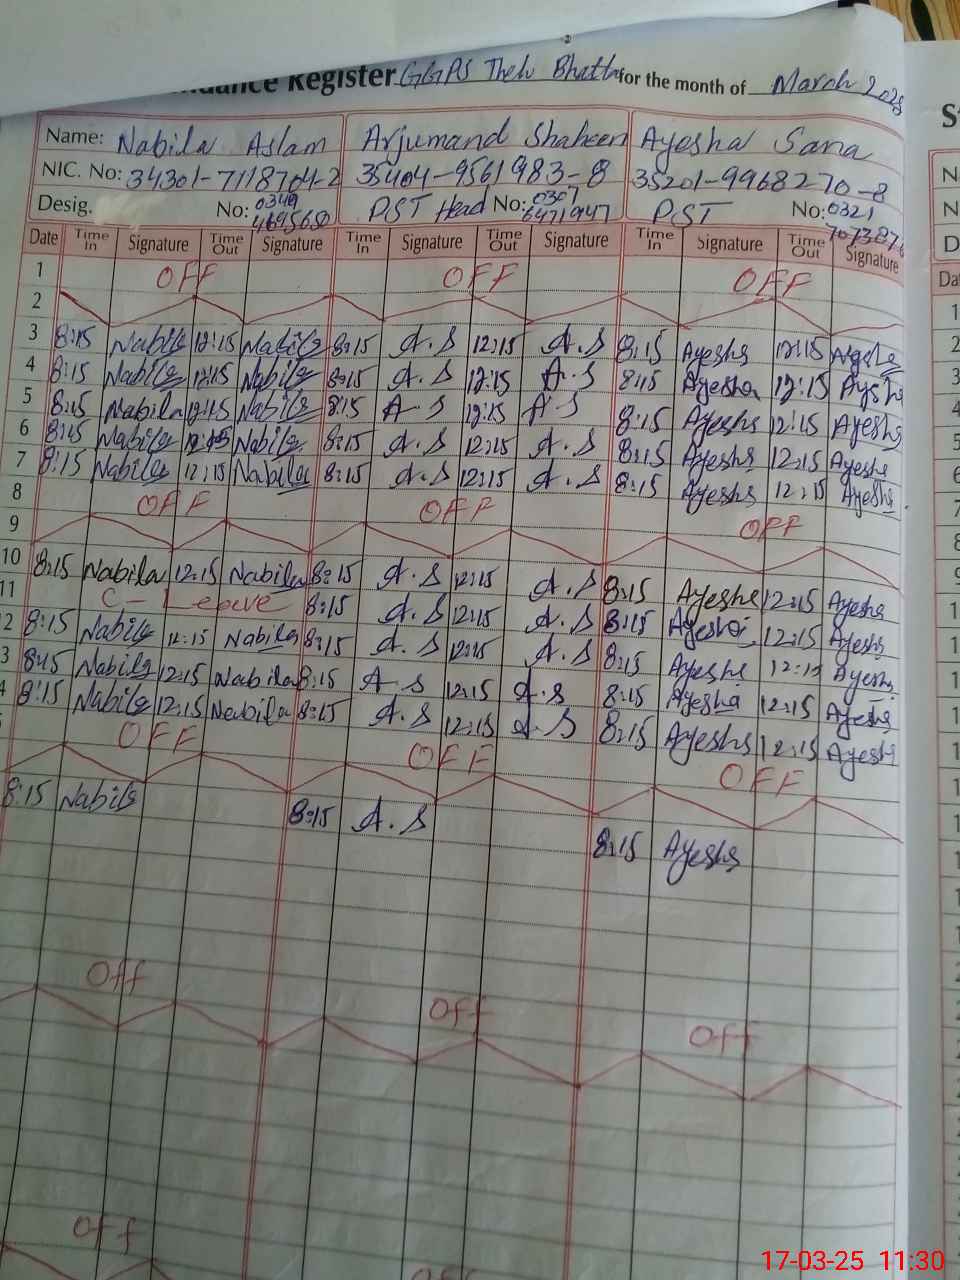 ndance Register GGPS Theh Bhatta for the month of March 2025
Name: Nabila Aslam Arjumand Shaheen Ayesha Sana
NIC. No: 34301-7118704-2 35404-9561983-8 35201-9968270-8
Desig. No: 0349 PST Head No: 0307 6471947 PST No: 0321
Date Time In Signature Time Out Signature Time In Signature Time Out Signature Time In Signature Time Out Signature
1 OFF OFF OFF
2
3 8:15 Nabila 12:15 Nabila 8:15 A.S 12:15 A.S 8:15 Ayesha 12:15 Ayesha
4 8:15 Nabila 12:15 Nabila 8:15 A.S 12:15 A.S 8:15 Ayesha 12:15 Aysha
5 8:15 Nabila 12:15 Nabila 8:15 A.S 12:15 A.S 8:15 Ayesha 12:15 Ayesha
6 8:15 Nabila 12:15 Nabila 8:15 A.S 12:15 A.S 8:15 Ayesha 12:15 Ayesha
7 8:15 Nabila 12:15 Nabila 8:15 A.S 12:15 A.S 8:15 Ayesha 12:15 Ayesha
8 OFF OFF OFF
9
10 8:15 Nabila 12:15 Nabila 8:15 A.S 12:15 A.S 8:15 Ayesha 12:15 Ayesha
11 C-Leave 8:15 A.S 12:15 A.S 8:15 Ayesha 12:15 Ayesha
2 8:15 Nabila 12:15 Nabila 8:15 A.S 12:15 A.S 8:15 Ayesha 12:15 Ayesha
3 8:15 Nabila 12:15 Nabila 8:15 A.S 12:15 A.S 8:15 Ayesha 12:15 Ayesha
4 8:15 Nabila 12:15 Nabila 8:15 A.S 12:15 A.S 8:15 Ayesha 12:15 Ayesha
OFF OFF OFF
8:15 Nabila 8:15 A.S 8:15 Ayesha
Off Off Off
Off
17-03-25 11:30